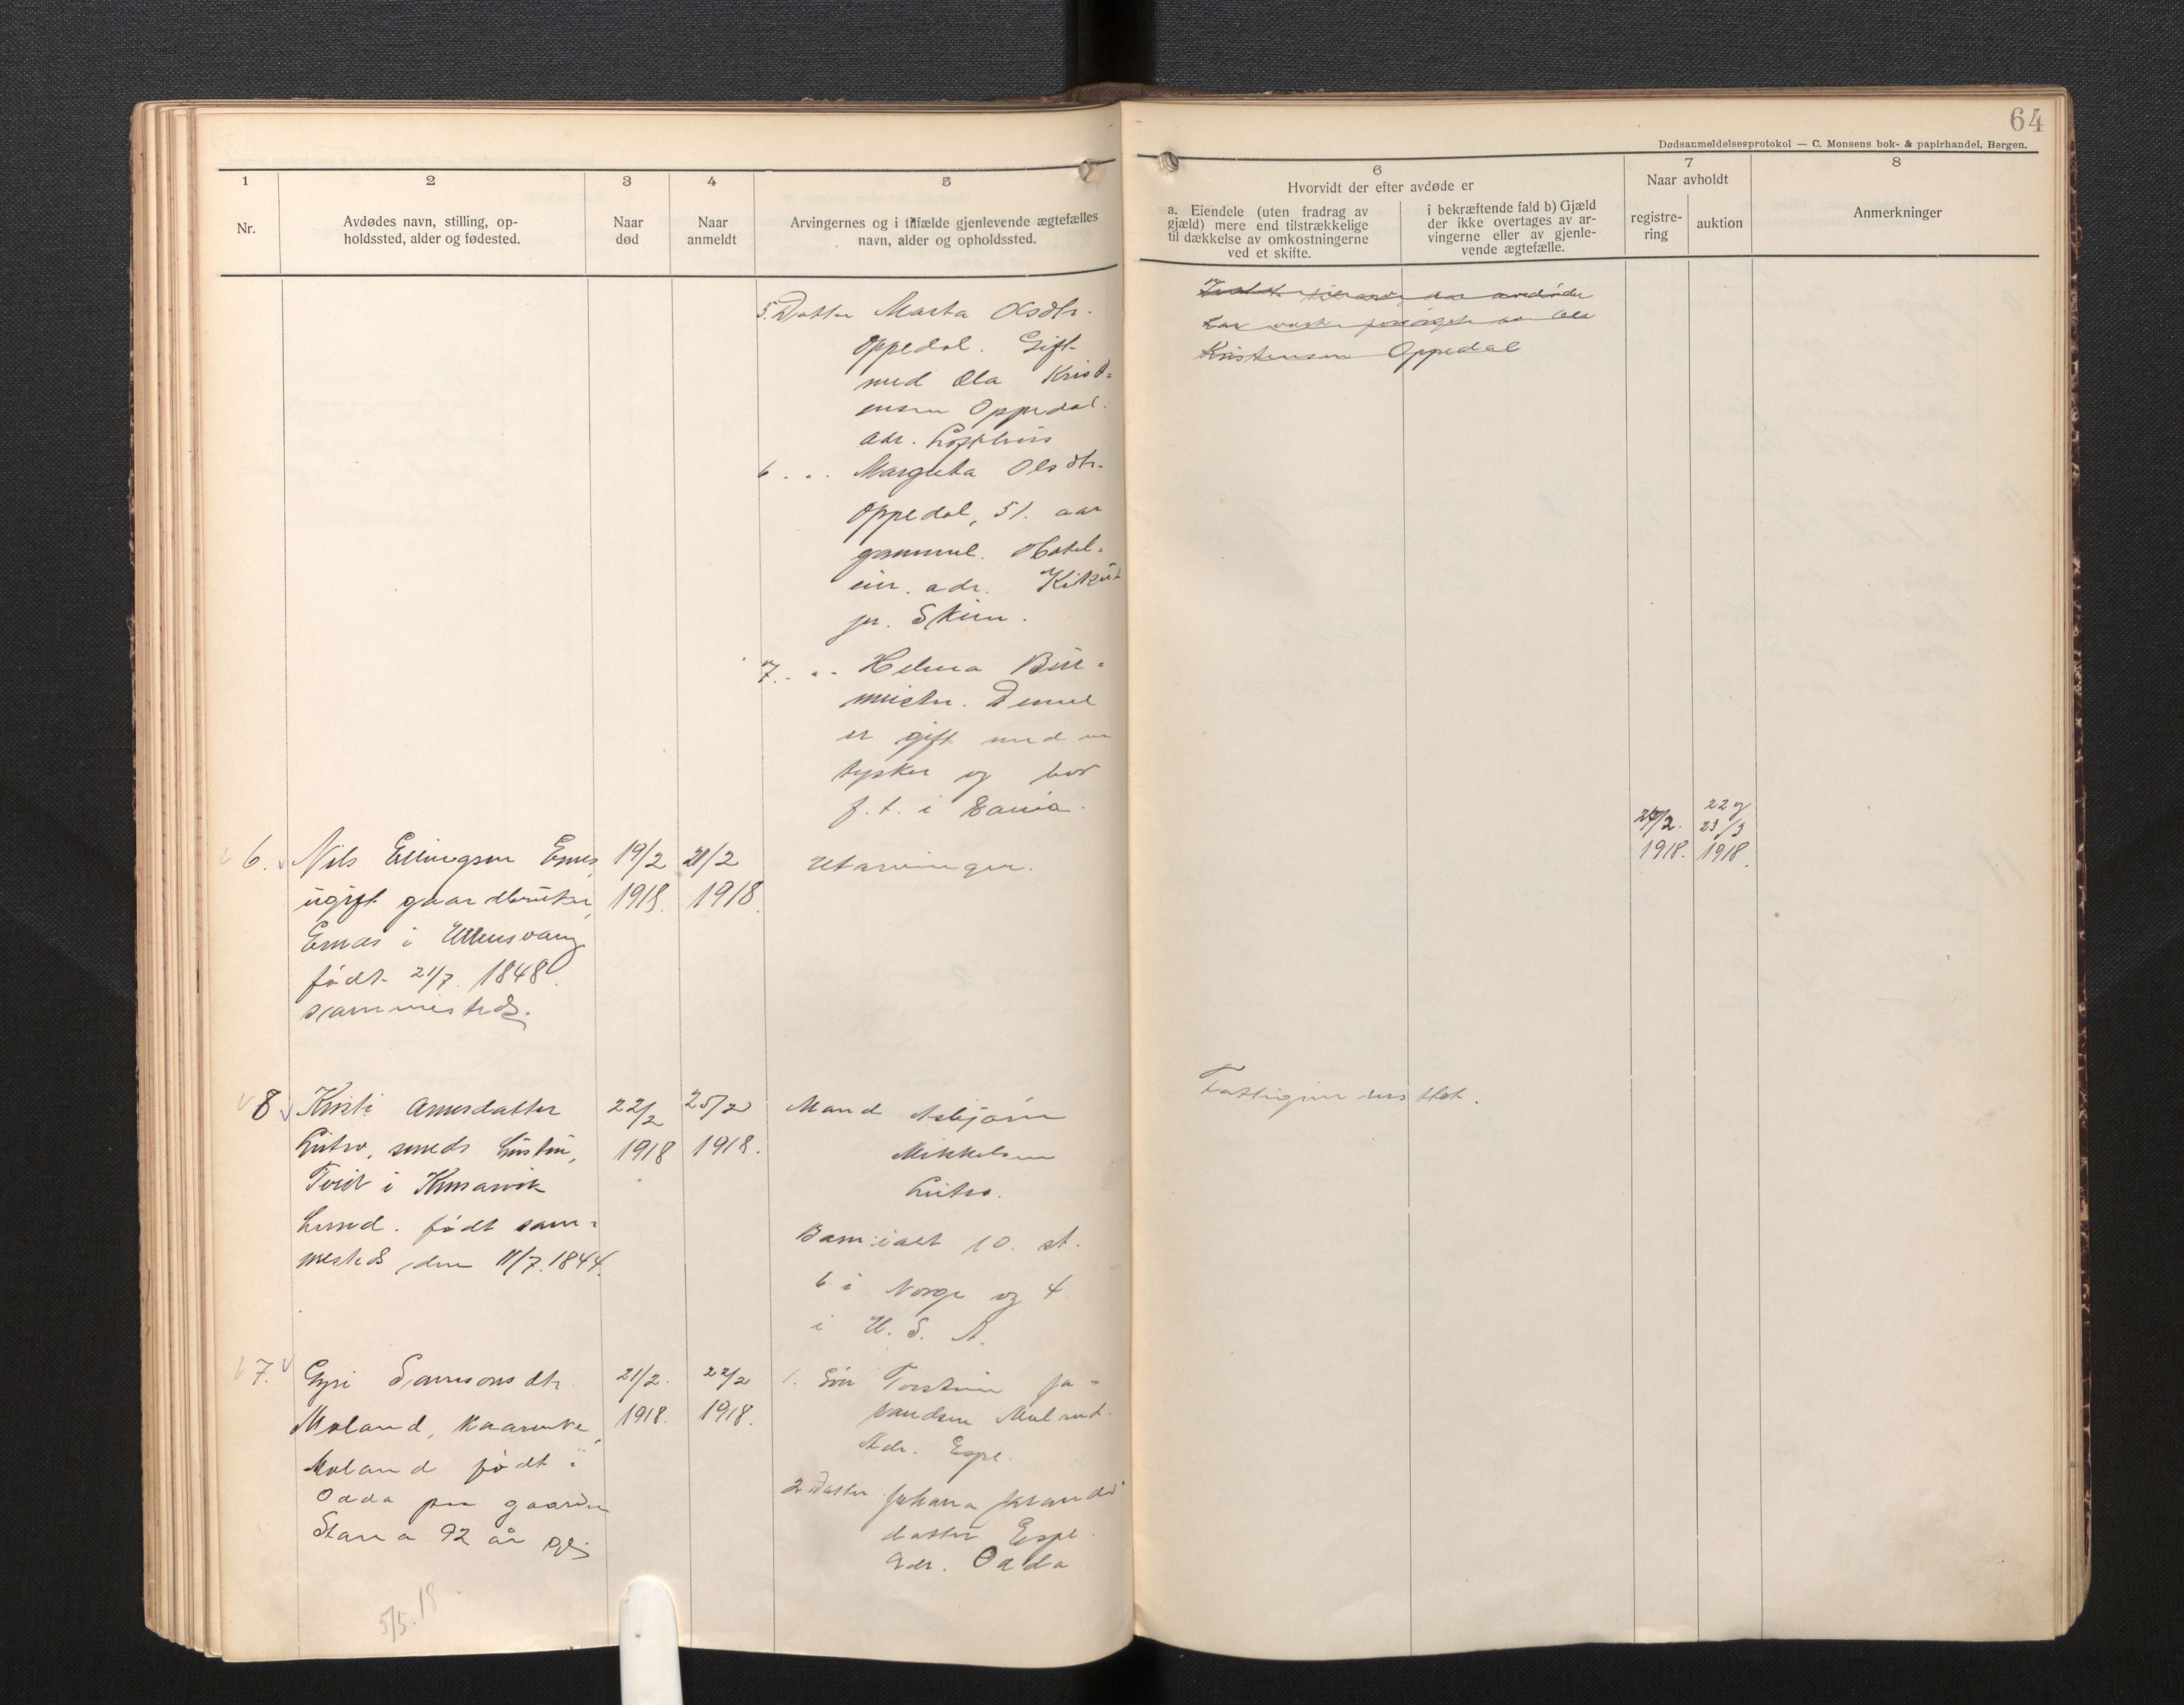 64
Dødsanmeldelsesprotokol — C. Monsens bok- & papirhandel. Bergen.
1
2
3
4
5
6
7
8
Nr.
Avdødes navn, stilling, op-
holdssted, alder og fødested.
Naar
død
Naar
anmeldt
Arvingernes og i tilfælde gjenlevende ægtefælles
navn, alder og opholdssted.
Hvorvidt der efter avdøde er
a. Eiendele (uten fradrag av
gjæld) mere end tilstrækkelige
til dækkelse av omkostningerne
ved et skifte.
i bekræftende fald b) Gjæld
der ikke overtages av ar-
vingerne eller av gjenle-
vende ægtefælle.
Naar avholdt
registre-
ring
auktion
Anmerkninger
5. Datter Marta Olsdtr.
Oppedal. Gift
med Ola Krist-
ensen Oppedal.
adr. Lofthus
6 . . Margreta Olsdtr.
Oppedal, 51. aar
gammel. Hotel-
eier. adr. Kikut
pr. Skien.
7. . . Helma
meister. Denne
er gift med en
tysker og bor
f. t. i
avdøde
har av Ola
Kristensen Oppedal
6. Nils Ellingsen Ernes
ugift gaardbruker,
Ernæs i Ullensvang
født 21/7. 1848.
sammesteds.
19/2
1918.
21/2
1918.
Utarvinger.
27/2.
1918.
22 og
23/3
1918.
8 Kristi Arnesdatter
Lutro, smeds hustru,
Tveit i Kinsarvik
herred. født sam-
mesteds den 11/7. 1844.
22/2
1918
25/2
1918.
Mand Asbjørn
Mikkelsen
Lutro.
Barn ialt 10. st.
6 i Norge og 4
i U. S. A.
7. Gyri Samsonsdtr
Moland, kaarenke,
Moland født i
Odda paa gaarden
92 år gl.
21/2.
1918.
22/2
1918.
1. Søn Torstein
Moland.
Adr. Espe.
2 Datter Johana
datter Espe.
Adr. Odda
5/5. 18.